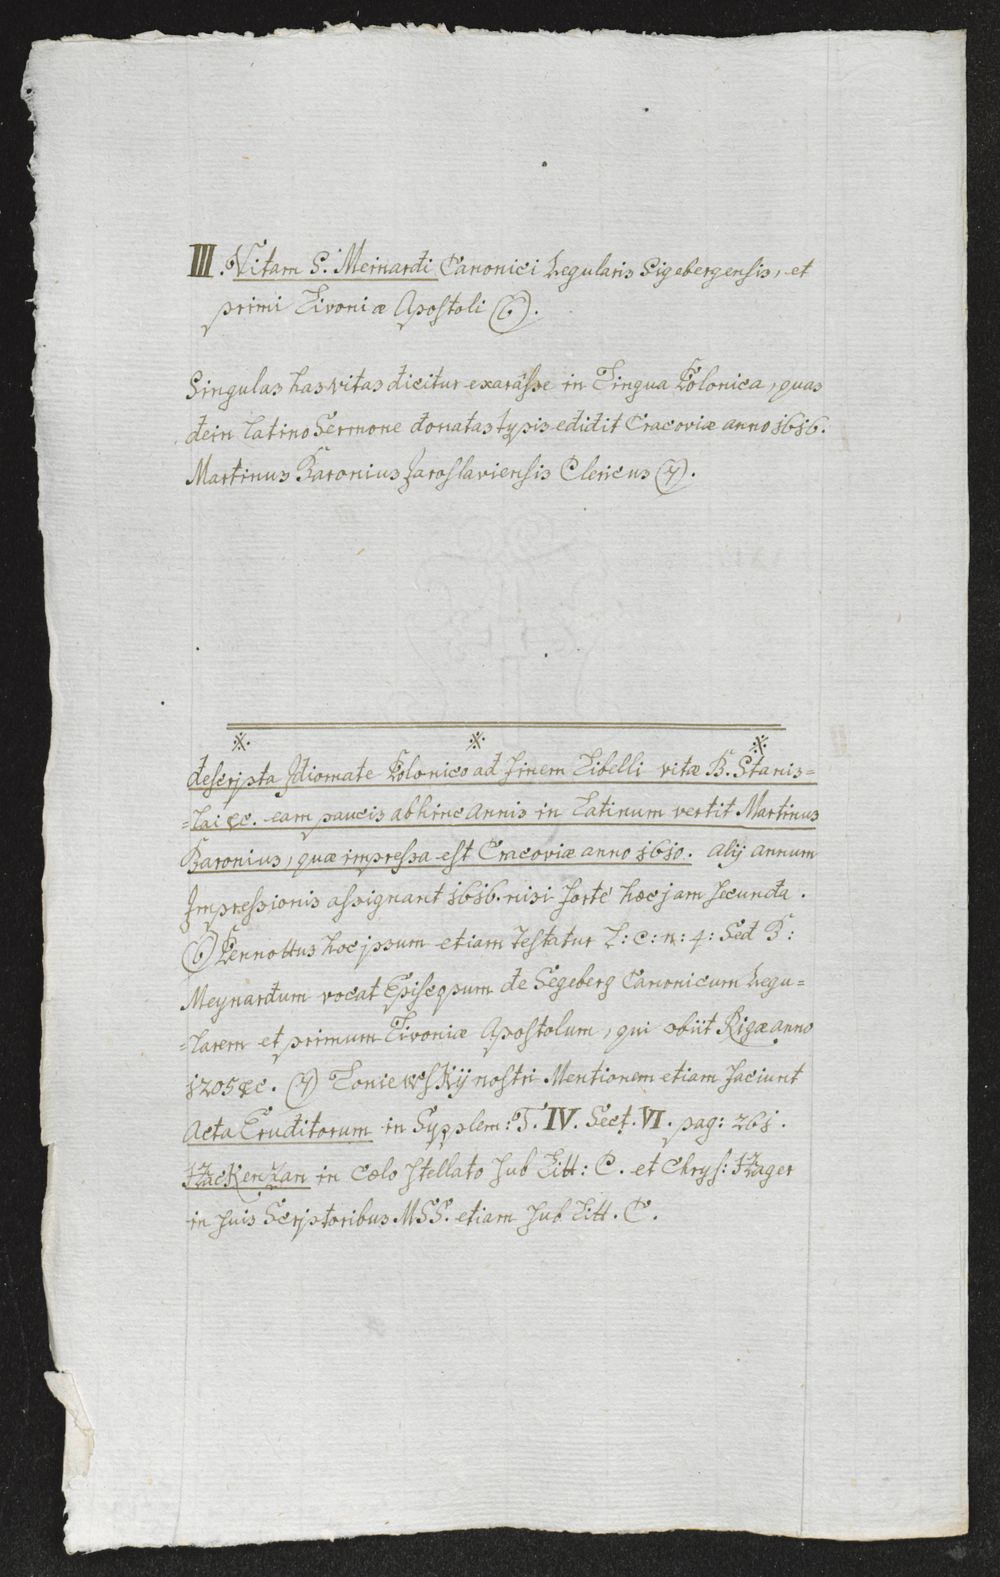 III. Vitam S. Meinardi Canonici Regularis Sigebergensis, et
primi Livoniæ Apostoli (6).
Singulas has vitas dicitur exarâsse in Lingua Polonica, quas
dein latino Sermone donatas typis edidit Cracoviæ anno 1616.
Martinus Baronius Jaroslaviensis Clericus (7).
descripta Idiomate Polonico ad finem Libelli vitæ B. Stanis=
=lai &c. eam paucis abhinc annis in Latinum vertit Martinus
Baronius, quæ impressa est Cracoviæ anno 1610. alij annum
Impressionis assignant 1616. nisi forte hæc jam secunda.
(6) Pennottus hoc ipsum etiam testatur l: c: n: 4: Sed B:
Meynardum vocat Episcopum de Segeberg Canonicum Regu=
=larem et primum Livoniæ Apostolum, qui obiit Rigæ anno
1205 &c. (7) Loniewskij nostri Mentionem etiam faciunt
Acta Eruditorum in Supplem: T. IV. Sect. VI. pag: 261.
Hackenzan in cœlo stellato sub Litt: C. et Chrys: Hager
in suis Scriptoribus MSS. etiam sub Litt. C.